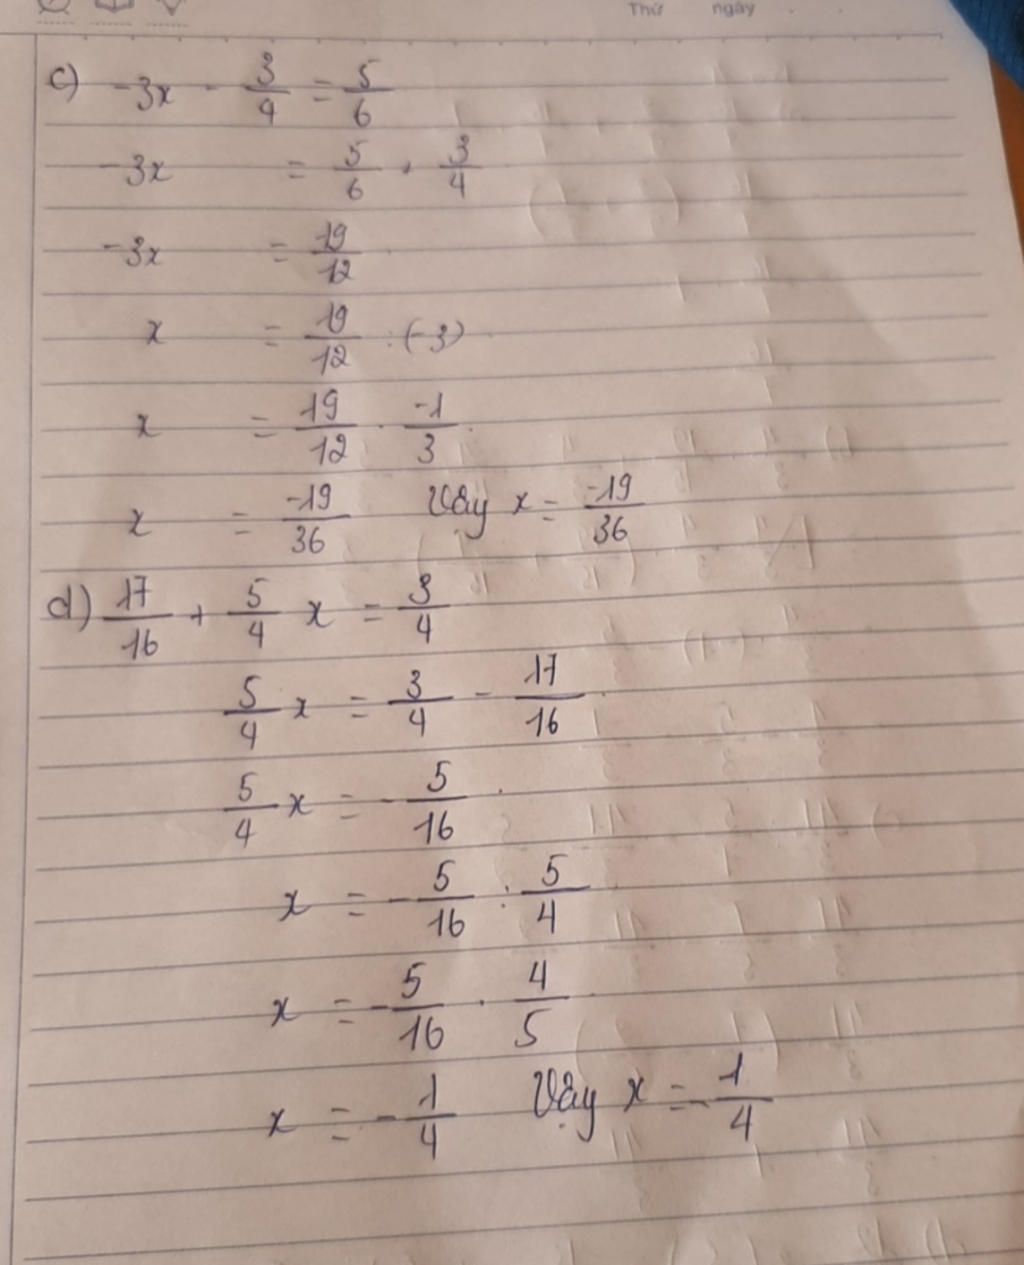 Thứ ngày
c) -3x - 3/4 = 5/6
-3x = 5/6 + 3/4
-3x = 19/12
x = 19/12 : (-3)
x = 19/12 . -1/3
x = -19/36 Vậy x = -19/36
d) 17/16 + 5/4 x = 3/4
5/4 x = 3/4 - 17/16
5/4 x = -5/16
x = -5/16 : 5/4
x = -5/16 . 4/5
x = -1/4 Vậy x = -1/4